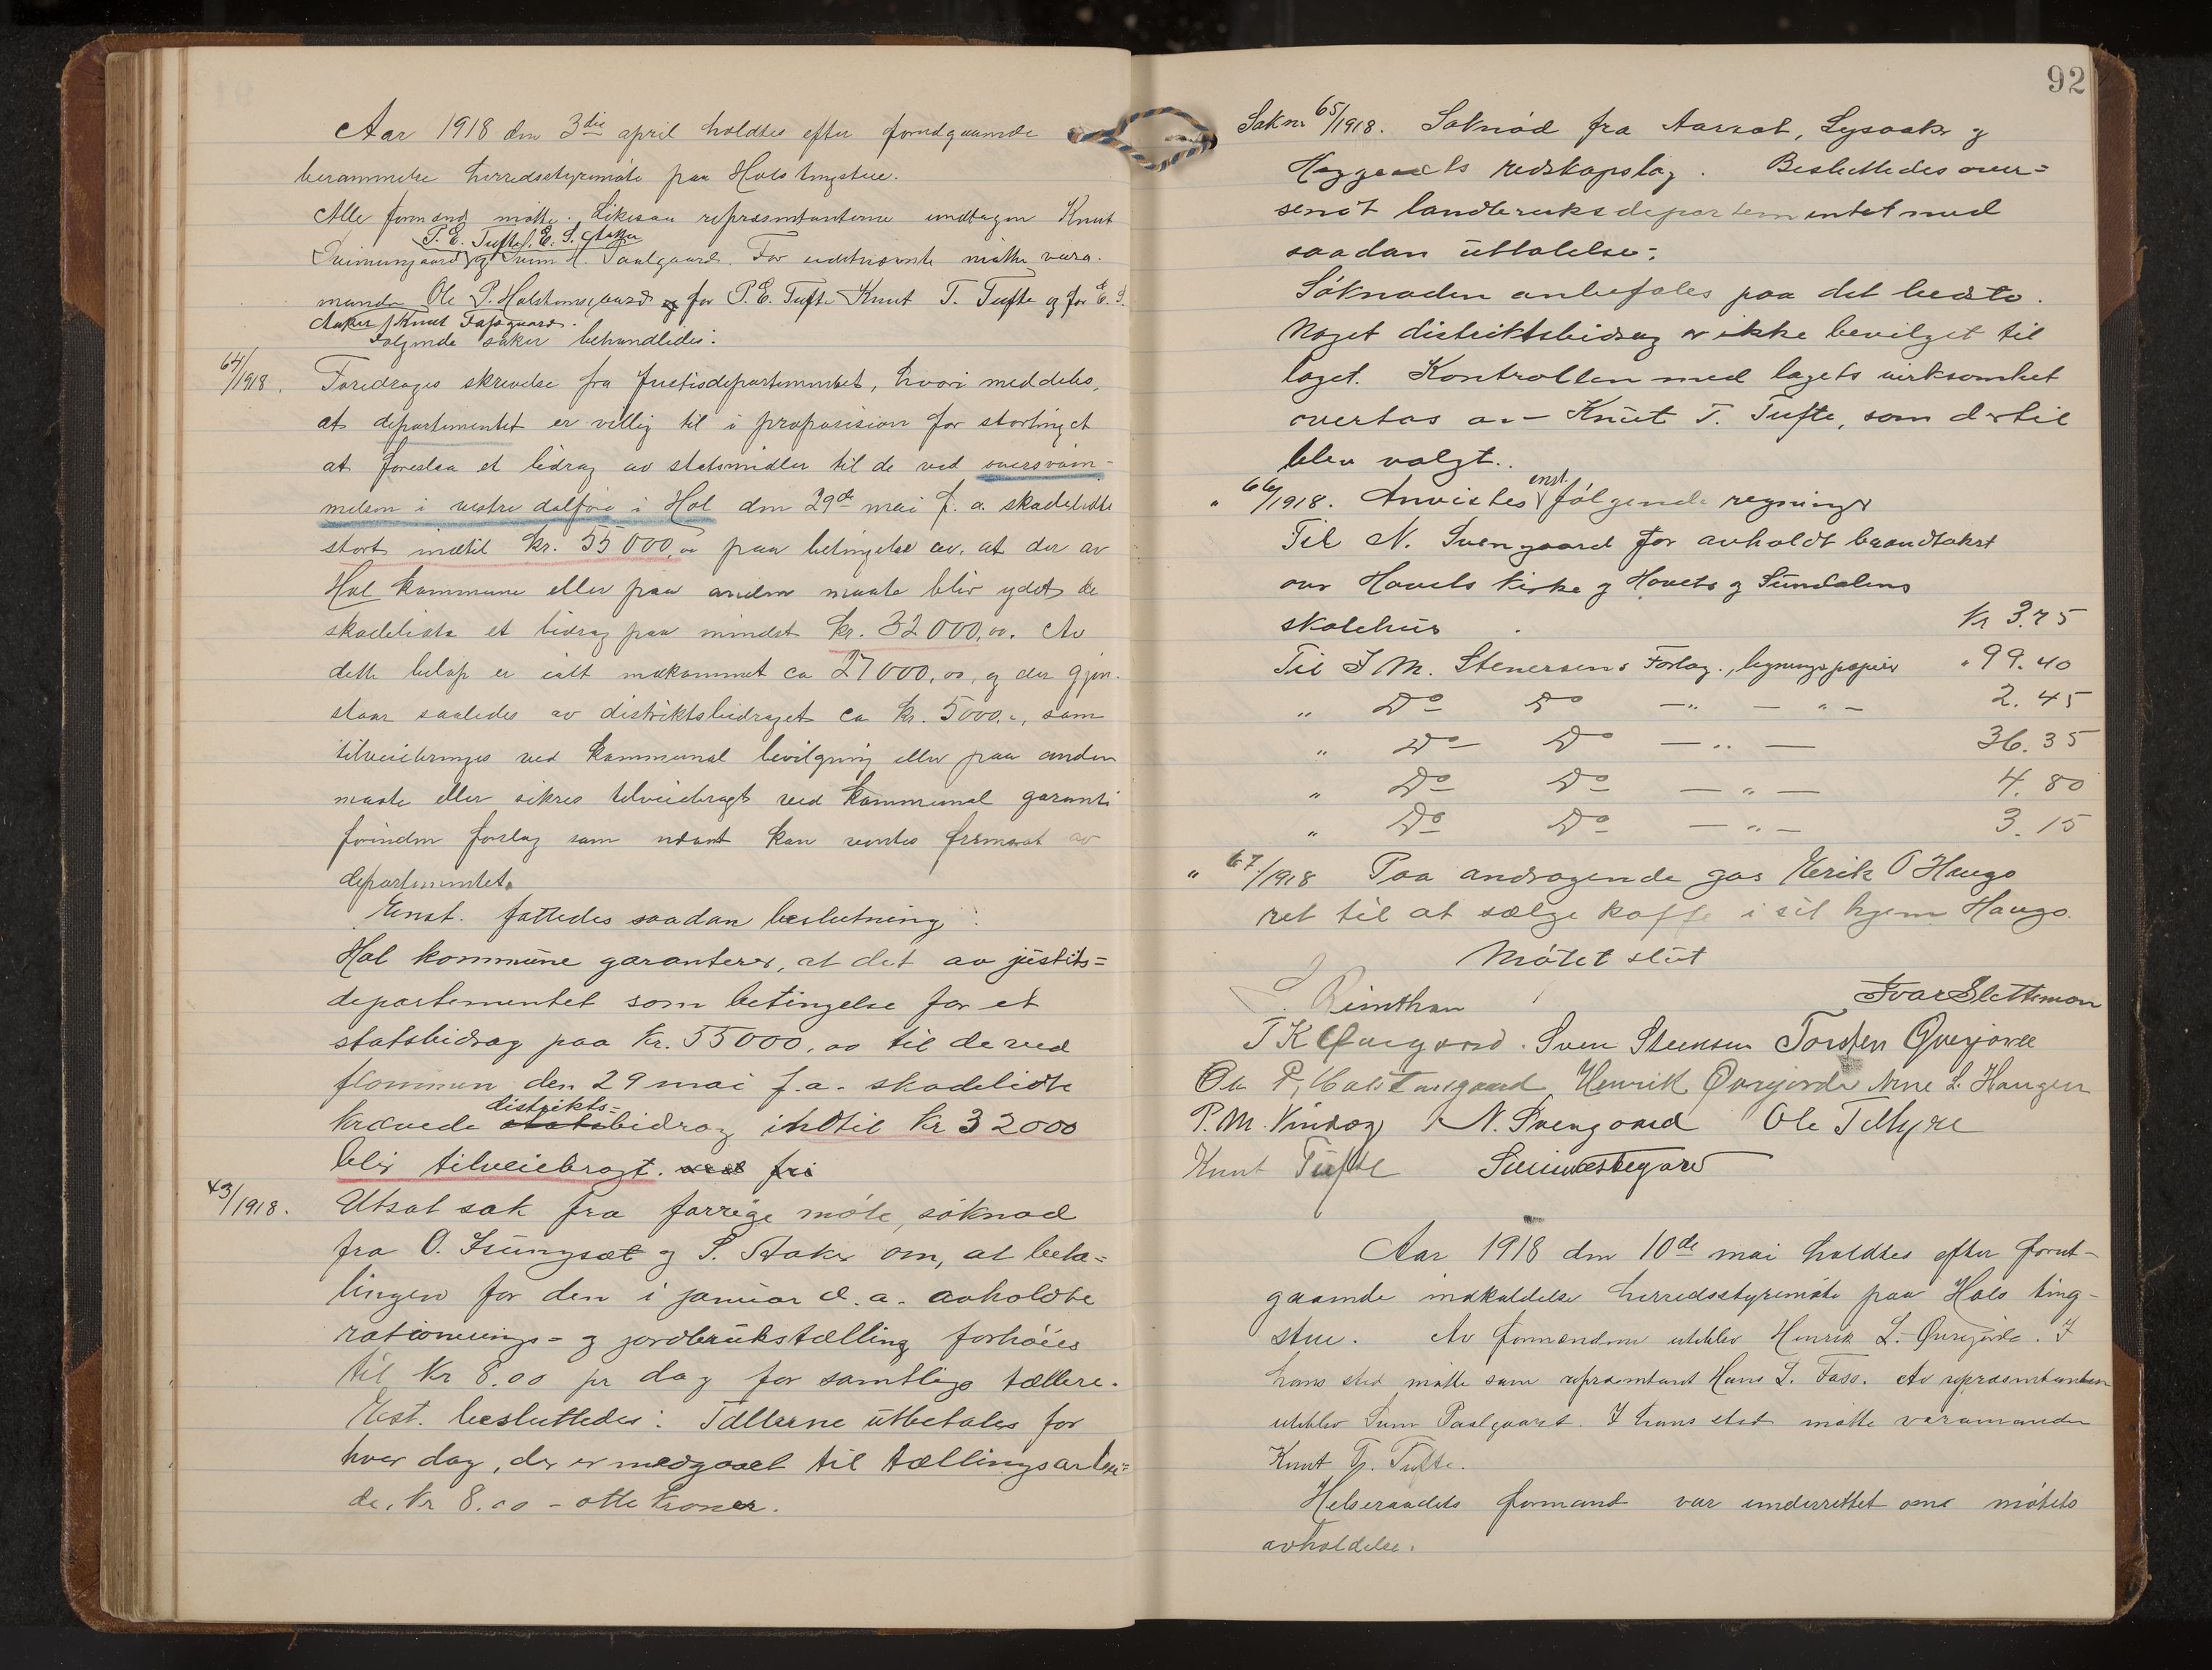 Aar 1918 den 3die april holdtes efter forutgaaende
berammelse herredsstyremøte paa Hols tingstue.
Alle formænd møtte. Likesaa repræsentanterne undtagen Knut
P. E. Tufte, E. S. Aaker
og Svein H. Paalgaard. For sidstnævnte møtte vara-
manden Ole P. Holstensgaard og for P. E. Tufte Knut T. Tufte og for E. S.
Aaker Knut
Følgende saker behandledes:
64/1918. Foredrages skrivelse fra Justisdepartementet, hvori meddeles,
at departementet er villig til i proposision for stortinget
at foreslaa et bidrag av statsmidler til de ved oversvøm-
melsen i vestre dalføre i Hol den 29de mai f. a. skadelidte
stort indtil kr. 55 000,00 paa betingelse av, at der av
Hol kommune eller paa anden maate blir ydet de
skadelidte et bidrag paa mindst kr. 32 000,00. Av
dette beløp er ialt indkommet ca 27000,00, og der gjen-
staar saaledes av distriktsbidraget ca kr. 5000,-, som
tilveiebringes ved kommunal bevilgning eller paa anden
maate eller sikres tilveiebragt ved kommunal garanti
forinden forslag som nævnt kan ventes fremsat av
departementet.
Enst. fattedes saadan beslutning:
Hol kommune garanterer, at det av justits=
departementet som betingelse for et
statsbidrag paa kr. 55000,00 til de ved
flommen den 29 mai f.a. skadelidte
distrikts=
krævede statsbidrag indtil kr 32000
blir tilveiebragt. fri
43/1918. Utsat sak fra forrige møte, søknad
fra O. Isungset og S. Aaker om, at beta=
lingen for den i januar d. a. avholdte
rationerings= og jordbrukstælling forhøies
til kr 8.00 pr dag for samtlige tællere.
Enst. besluttedes: Tællerne utbetales for
hver dag, der er medgaaet til tællingsarbei=
de, kr 8.00 - otte kroner.
92
Sak nr 65/1918. Søknad fra Aarset, Lysaaker og
Haggaards redskapslag. Besluttedes over=
sendt landbruksdepartementet med
saadan uttalelse:
Søknaden anbefales paa det bedste.
Noget distriktsbidrag er ikke bevilget til
laget. Kontrollen med lagets virksomhet
overtas av Knut T. Tufte, som dertil
blev valgt.
" 66/1918. Anvistes enst. følgende regninger
Til N. Svengaard for avholdt brandtakst
over Hovets kirke og Hovets og Sundalens
skolehus kr 3.75
Til J. M. Stenersens Forlag., ligningspapirer " 99.40
" Do Do —"— —"— 2.45
" Do Do —"— 36.35
" Do Do —"— 4.80
" Do Do —"— 3.15
" 67/1918 Paa andragende gas Eerik O Haugo
ret til at sælge kaffe i sit hjem Haugo.
Møtet slut
Ivar Slettemoen
T K Svein Steensen Torsten Øvrejorde
Ole P. Holstensgaard Henrik Øvrejorde Arne L. Haugen
P. M. N. Svengaard Ole T Myre
Knut Tufte
Aar 1918 den 10de mai holdtes efter forut-
gaaende indkaldelse herredsstyremøte paa Hols ting-
stue. Av formændene uteblev Henrik L. Øvrejorde. I
hans sted møtte som repræsentant Hans L. Foss. Av repræsentanter
uteblev Svein Paalgaard. I hans sted møtte varamanden
Knut T. Tufte.
Helseraadets formand var underrettet om møtets
avholdelse.